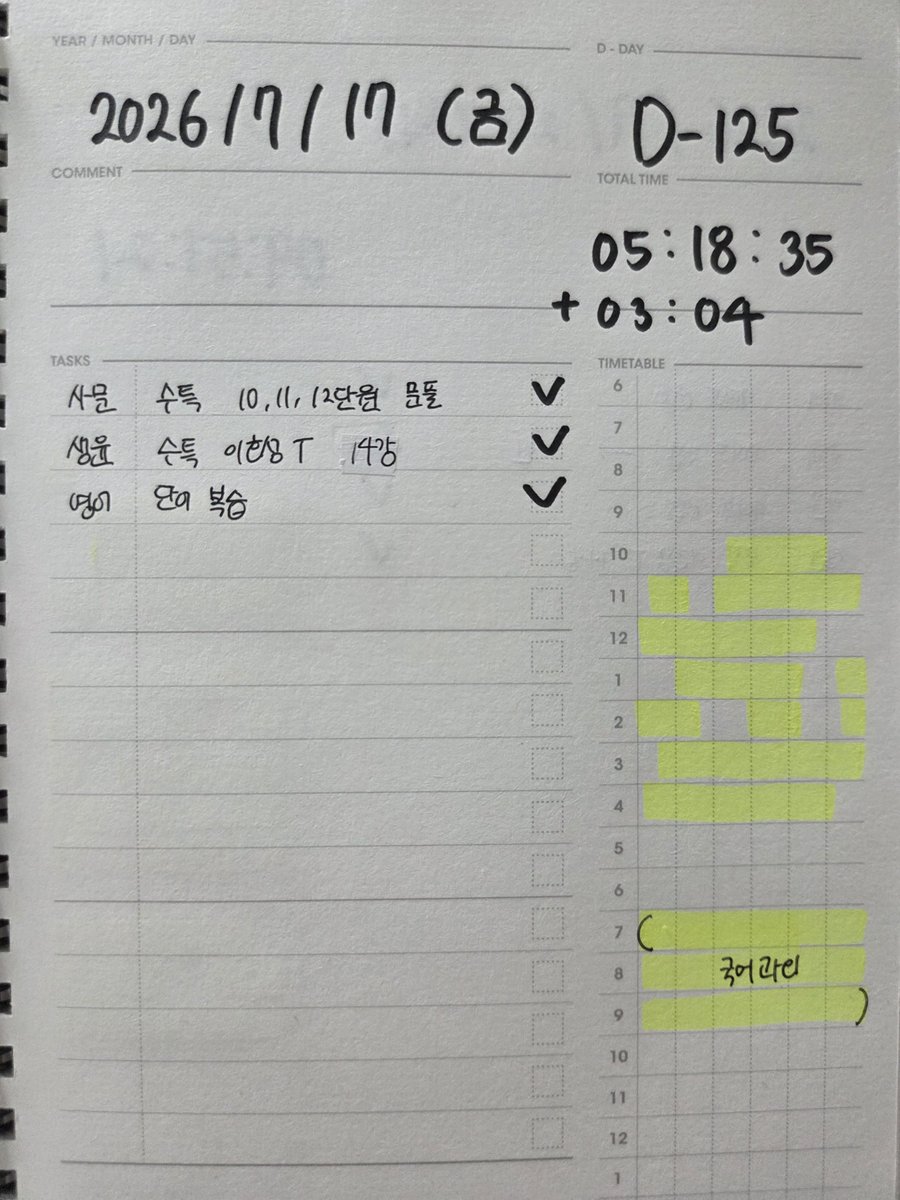 YEAR / MONTH / DAY
D - DAY
2026/7/17 (금)
D-125
COMMENT
TOTAL TIME
05:18:35
+ 03:04
TASKS
TIMETABLE
사문 수특 10, 11, 12단원 문풀
생윤 수특 이현성T 14강
영어 단어 복습
6
7
8
9
10
11
12
1
2
3
4
5
6
7 (
8 국어과외
9 )
10
11
12
1